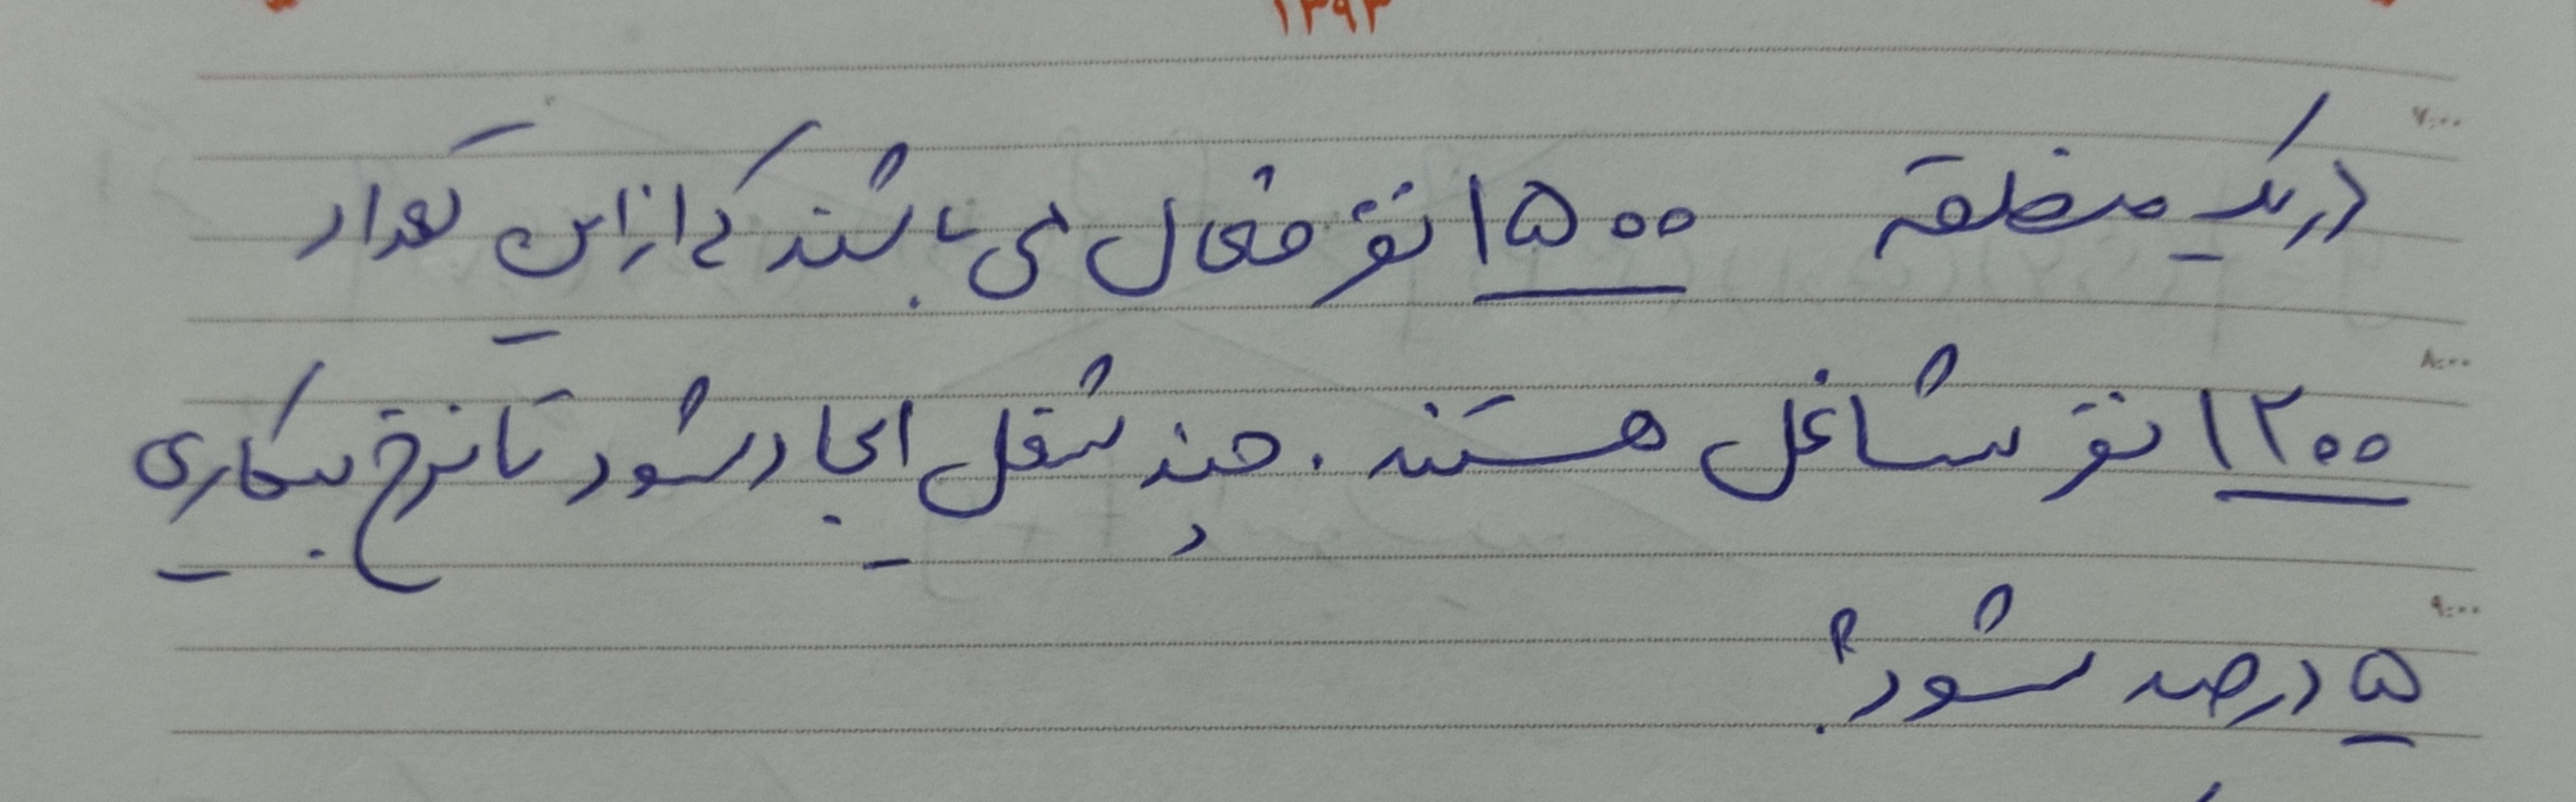 ۱۳۹۳
۷:۰۰
در یک منطقه ۱۵۰۰ نفر فعال می باشند که از این تعداد
۸:۰۰
۱۲۰۰ نفر شاغل هستند. چند شغل ایجاد شود تا نرخ بیکاری
۹:۰۰
۵ درصد شود؟